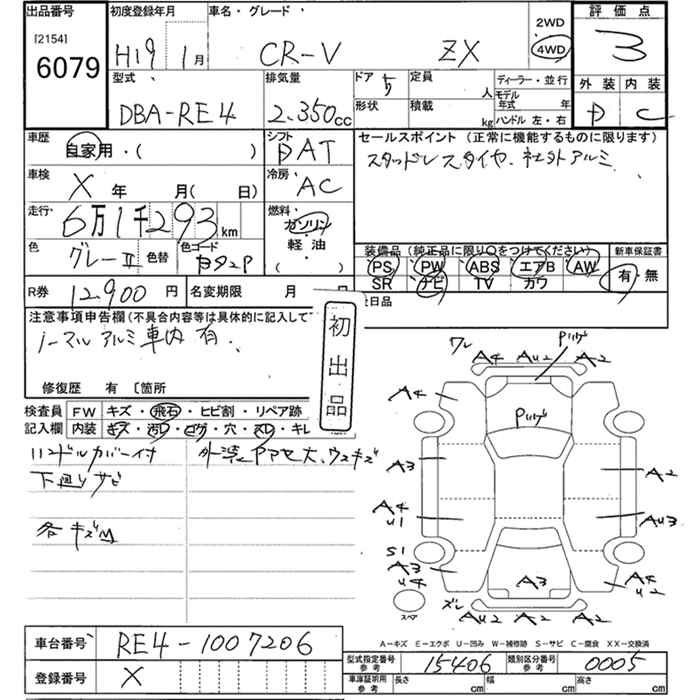 出品番号
[2154]
6079
初度登録年月
H19年 1月
車名・グレード
CR-V ZX
2WD
4WD
評価点
3
外装 内装
C
型式
DBA-RE4
排気量
2.350cc
ドア
5
定員
人
形状
積載
kg
ディーラー・並行
モデル
年式 年
ハンドル 左・右
車歴
自家用・( )
シフト
AT
セールスポイント (正常に機能するものに限ります)
スタッドレスタイヤ、社外アルミ
車検
X 年 月( 日)
冷房
AC
走行
6万1千293km
燃料
ガソリン
軽油
( )
色
グレーII
色替
色コード
装備品(純正品に限り〇をつけてください)
PS PW ABS エアB AW
SR ナビ TV カワ
新車保証書
有・無
R券 12,900円
名変期限 月 日
後日品
注意事項申告欄(不具合内容等は具体的に記入して
ノーマルアルミ車内有.
修復歴 有 〔箇所
初出品
検査員
記入欄
FW キズ・飛石・ヒビ割・リペア跡
内装 キズ・汚レ・コゲ・穴・スレ・キレ
ハンドルカバー付
下廻りサビ
各キズM
ワレ A4 AU2 A2
A4
A3
A4
U1
S1
A3
U4
A2
AU3
A4
U2
A3
ズレ AU2 A2 A2
スペア
A-キズ E-エクボ U-凹み W-補修跡 S-サビ C-腐食 XX-交換済
車台番号 RE4-1007206
登録番号 X
型式指定番号
参考
15406
類別区分番号
参考
0005
車庫証明用
参考
長さ cm
幅 cm
高さ cm